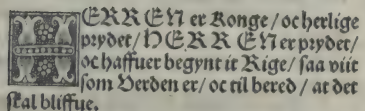 HERREN er Konge / oc herlige
prydet / HERREN er prydet /
oc haffuer begynt it Rige / saa viit
som Verden er / oc til bered / at det
skal bliffue.